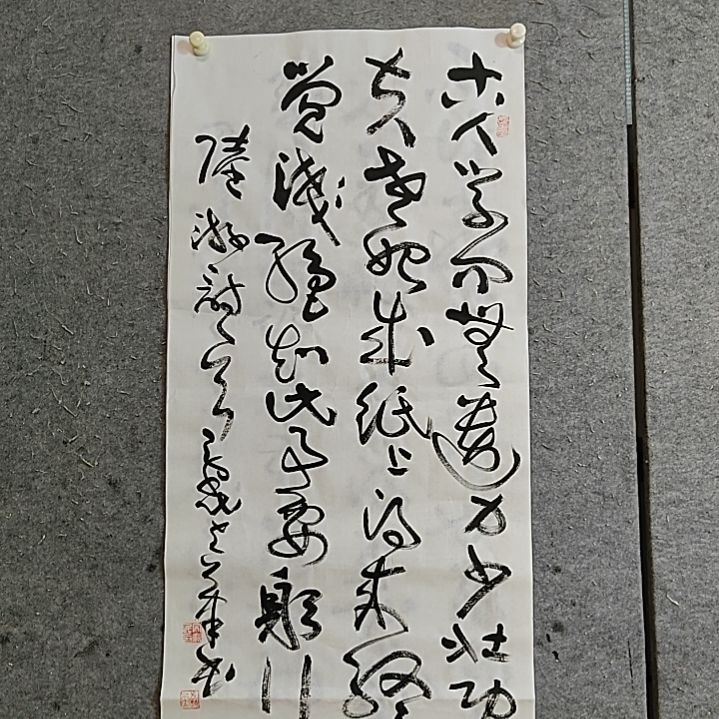 古人学问无遗力少壮功
夫老始成纸上得来终
觉浅绝知此事要躬行
陆游诗